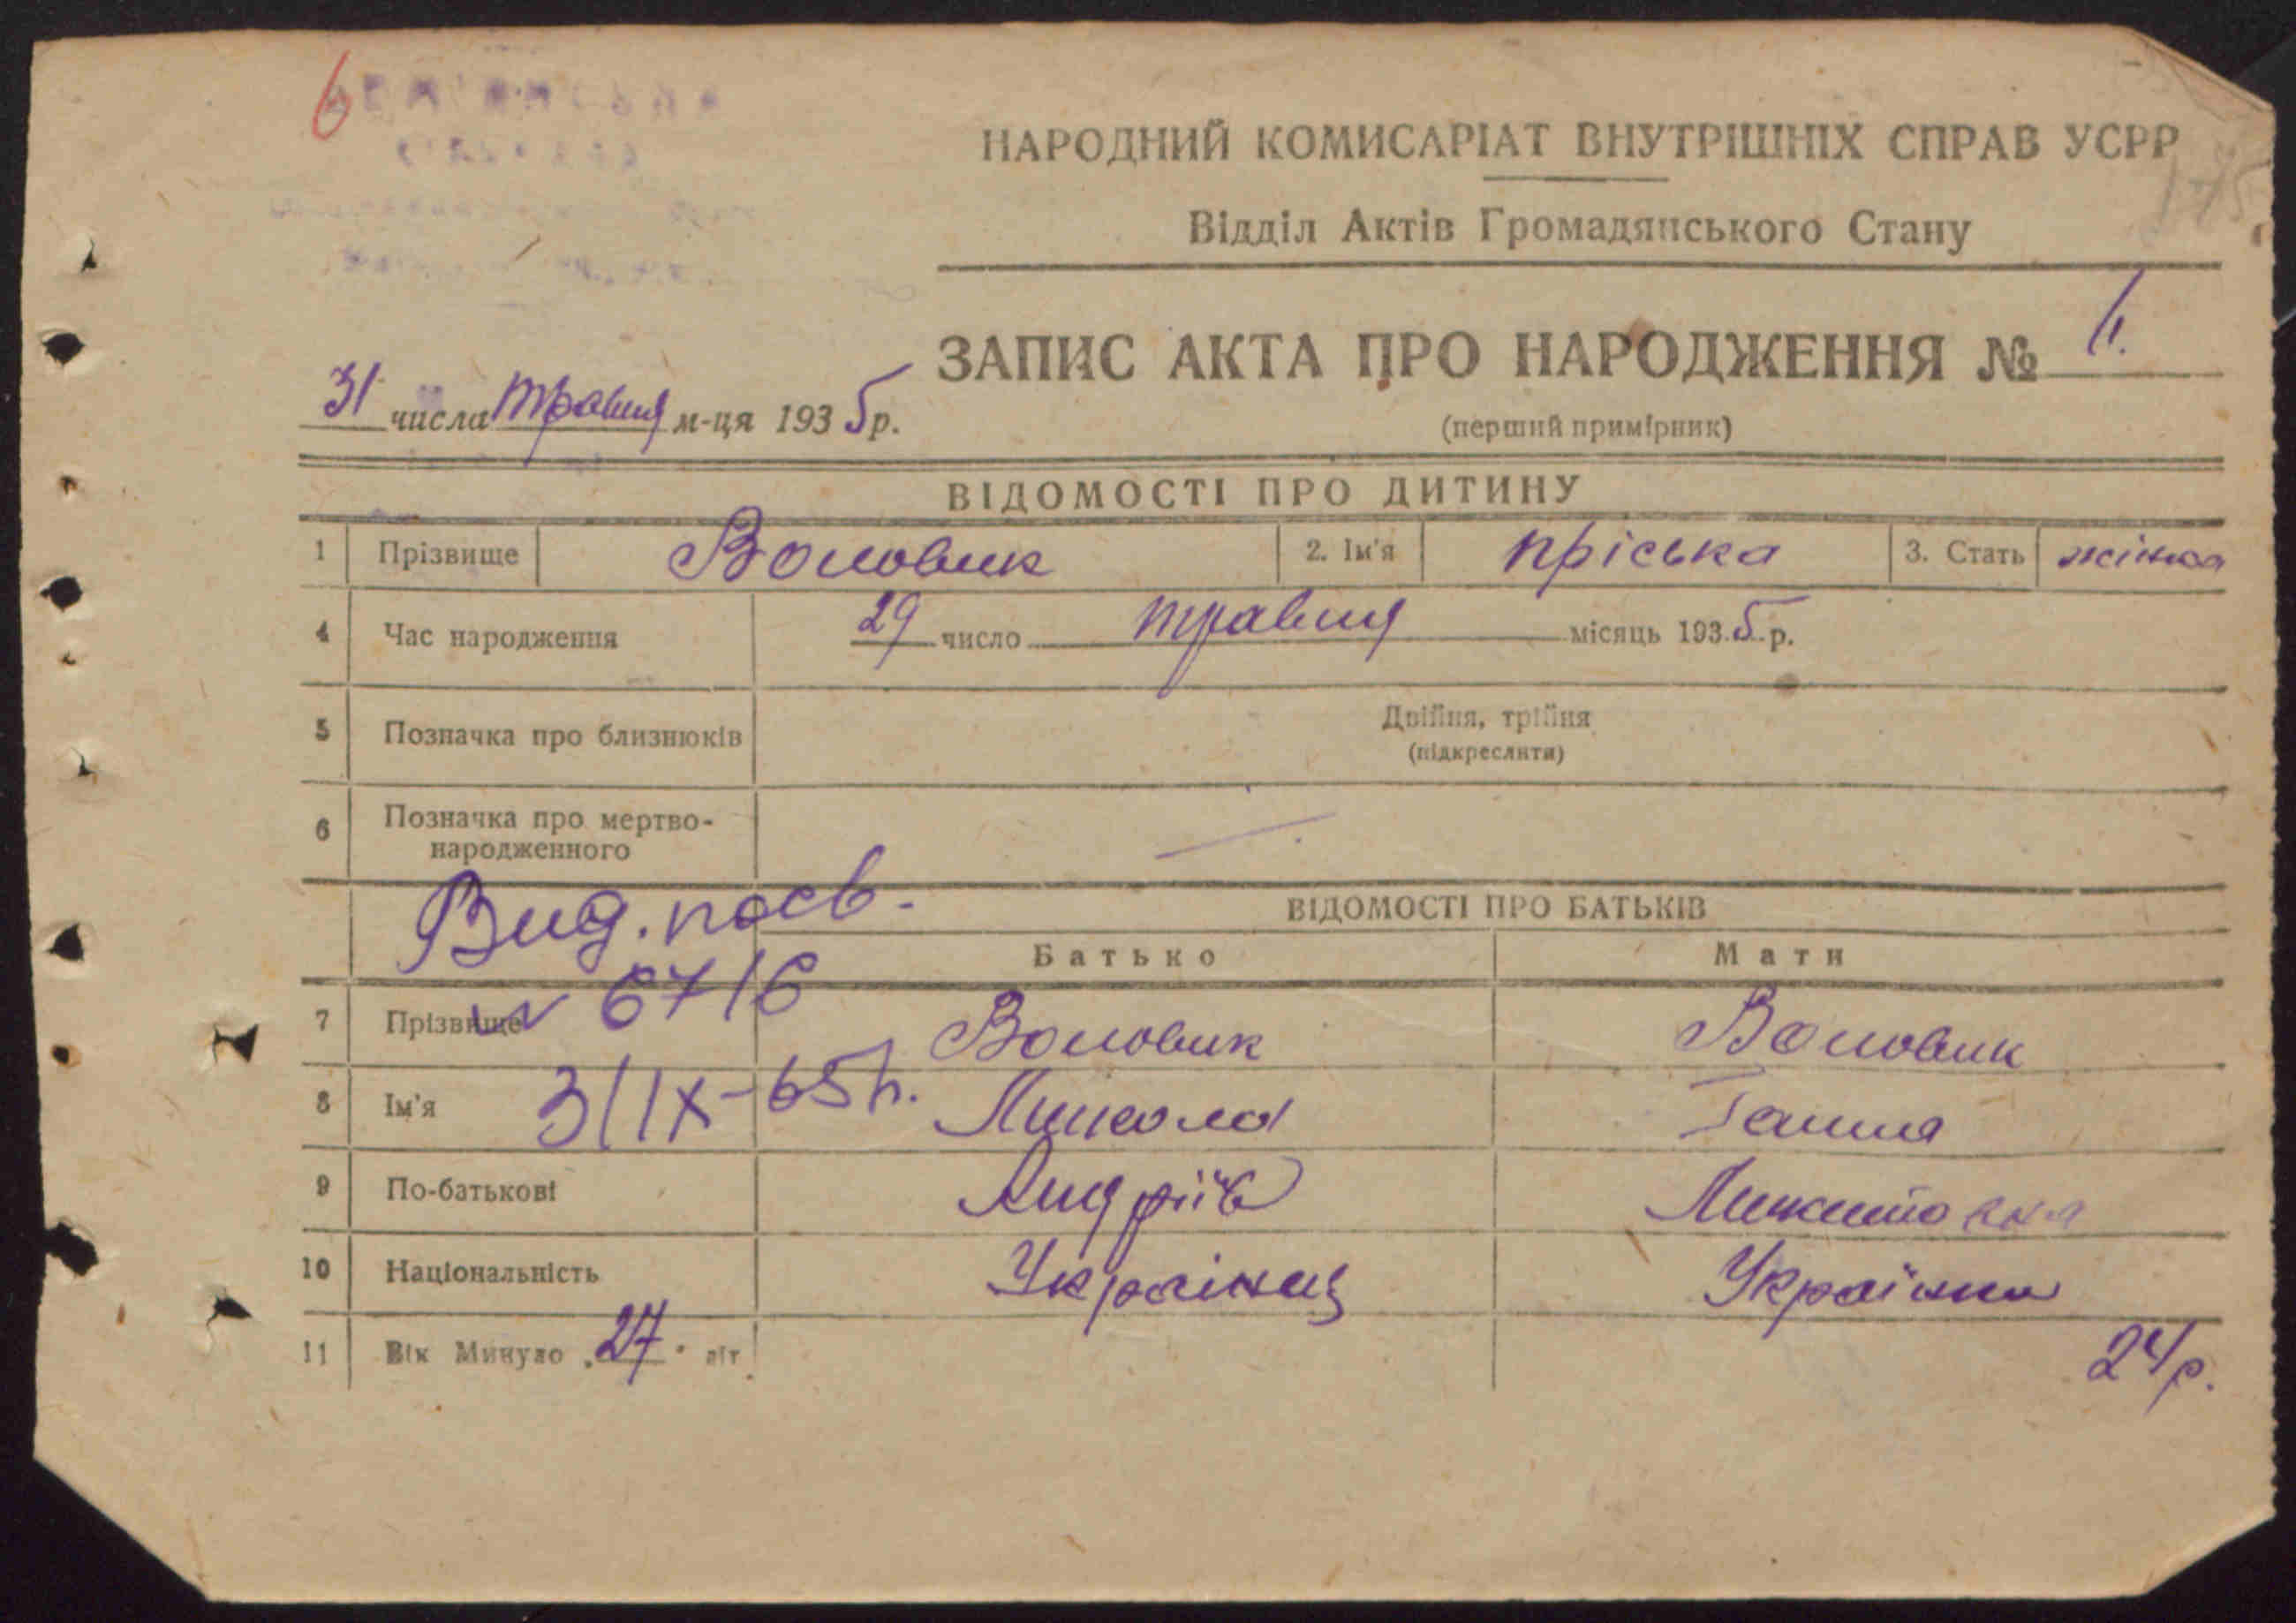 6
НАРОДНИЙ КОМИСАРІАТ ВНУТРІШНІХ СПРАВ УСРР
Відділ Актів Громадянського Стану
ЗАПИС АКТА ПРО НАРОДЖЕННЯ №
31 числа травня м-ця 1935 р.
(перший примірник)
ВІДОМОСТІ ПРО ДИТИНУ
1 Прізвище Воловик 2. Ім'я Пріська 3. Стать жіноча
4 Час народження 29 число травня місяць 1935 р.
5 Позначка про близнюків Двійня, трійня
(підкреслити)
6 Позначка про мертво-
народженного
Вид. посв.
ВІДОМОСТІ ПРО БАТЬКІВ
Батько Мати
№ 6716
7 Прізвище Воловик Воловик
8 Ім'я 3/IX-65р. Микола Ганна
9 По-батькові Андріїв Микитовна
10 Національність Українец Українка
11 Вік Минуло "27" літ 24 р.